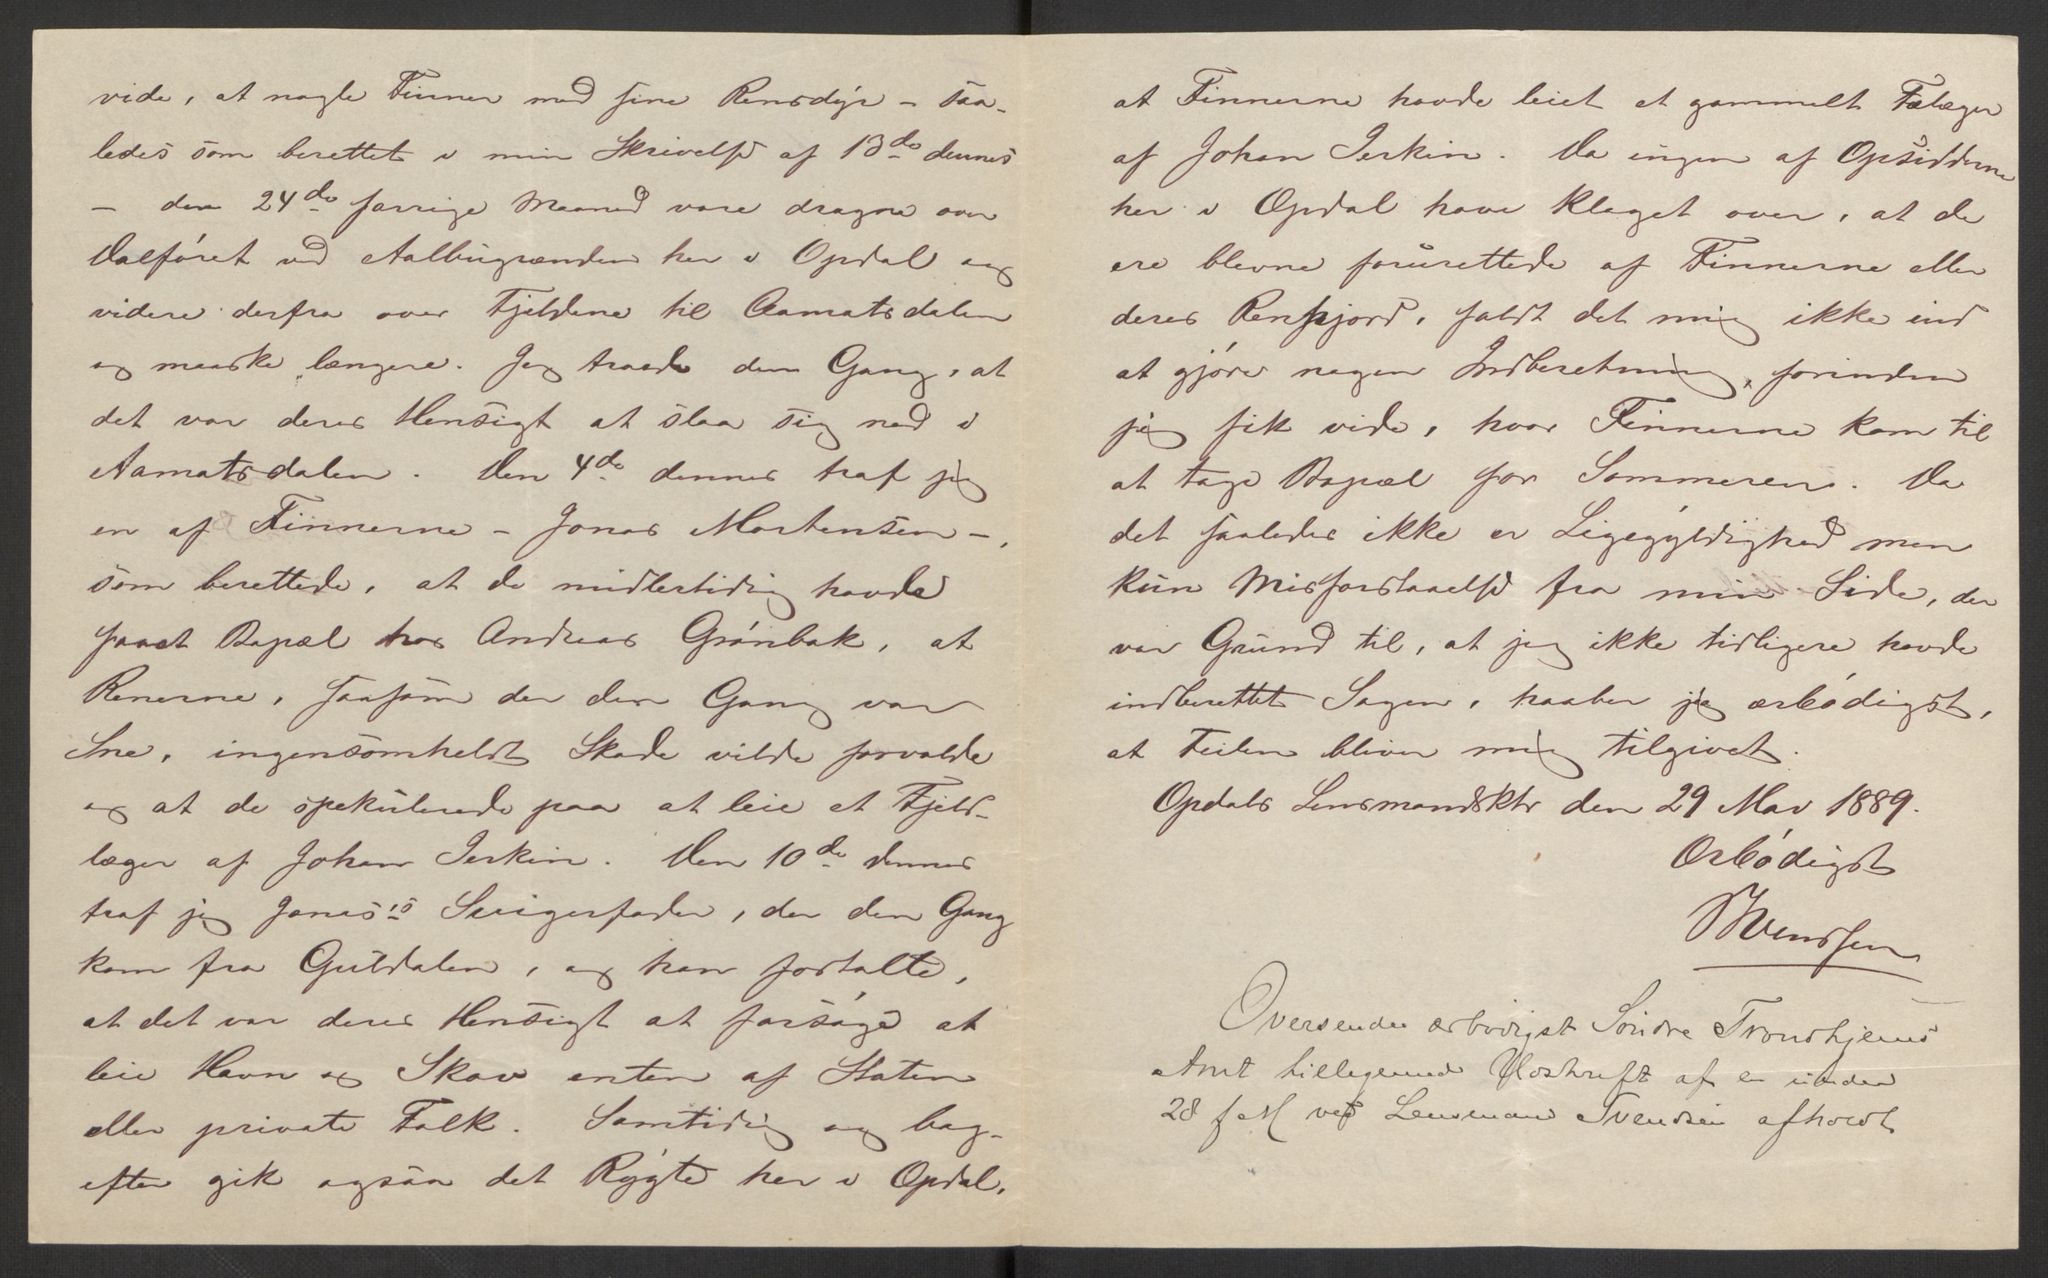 vide, at nogle Finner med sine Rensdyr – saa-
ledes som berettet i min Skrivelse af 13de dennes
– den 24de forrige Maaned vare dragne over
Dalføret ved Aalbugrænden her i Opdal og
videre derfra over Fjeldene til Aamotsdalen
og maaske længere. Jeg troede den Gang, at
det var deres Hensigt at slaa sig ned i
Aamotsdalen. Den 4de dennes traf jeg
en af Finnerne – Jonas Mortensen –,
som berettede, at de midlertidig havde
faaet Bopæl hos Andreas Grønbak, at
Renerne, saasom der den Gang var
Sne, ingensomheldst Skade vilde forvolde
og at de spekulerede paa at leie et Fjeld-
læger af Johan Jerkin. Den 10de dennes
traf jeg Jonas's Svigerfader, der den Gang
kom fra Guldalen, og han fortalte,
at det var deres Hensigt at forsøge at
leie Havn og Skov enten af Staten
eller private Folk. Samtidig og bag-
efter gik ogsaa det Rygte her i Opdal,
at Finnerne havde leiet et gammelt Fælæger
af Johan Jerkin. Da ingen af Opsidderne
her i Opdal have klaget over, at de
ere blevne forurettede af Finnerne eller
deres Renhjord, faldt det mig ikke ind
at gjøre nogen Indberetning, forinden
jeg fik vide, hvor Finnerne kom til
at tage Bopæl for Sommeren. Da
det saaledes ikke er Ligegyldighed men
kun Misforstaaelse fra min Side, der
var Grund til, at jeg ikke tidligere havde
indberettet Sagen, haaber jeg ærbødigst,
at Feilen bliver mig tilgivet.
Opdals Lensmandsktr den 29 Mai 1889.
Ærbødigst
Svendsen
Oversendes ærbødigst Søndre Trondhjems
Amt hillegende Udskrift af en under
28 ds ved Lensmand Svendsen afholdt